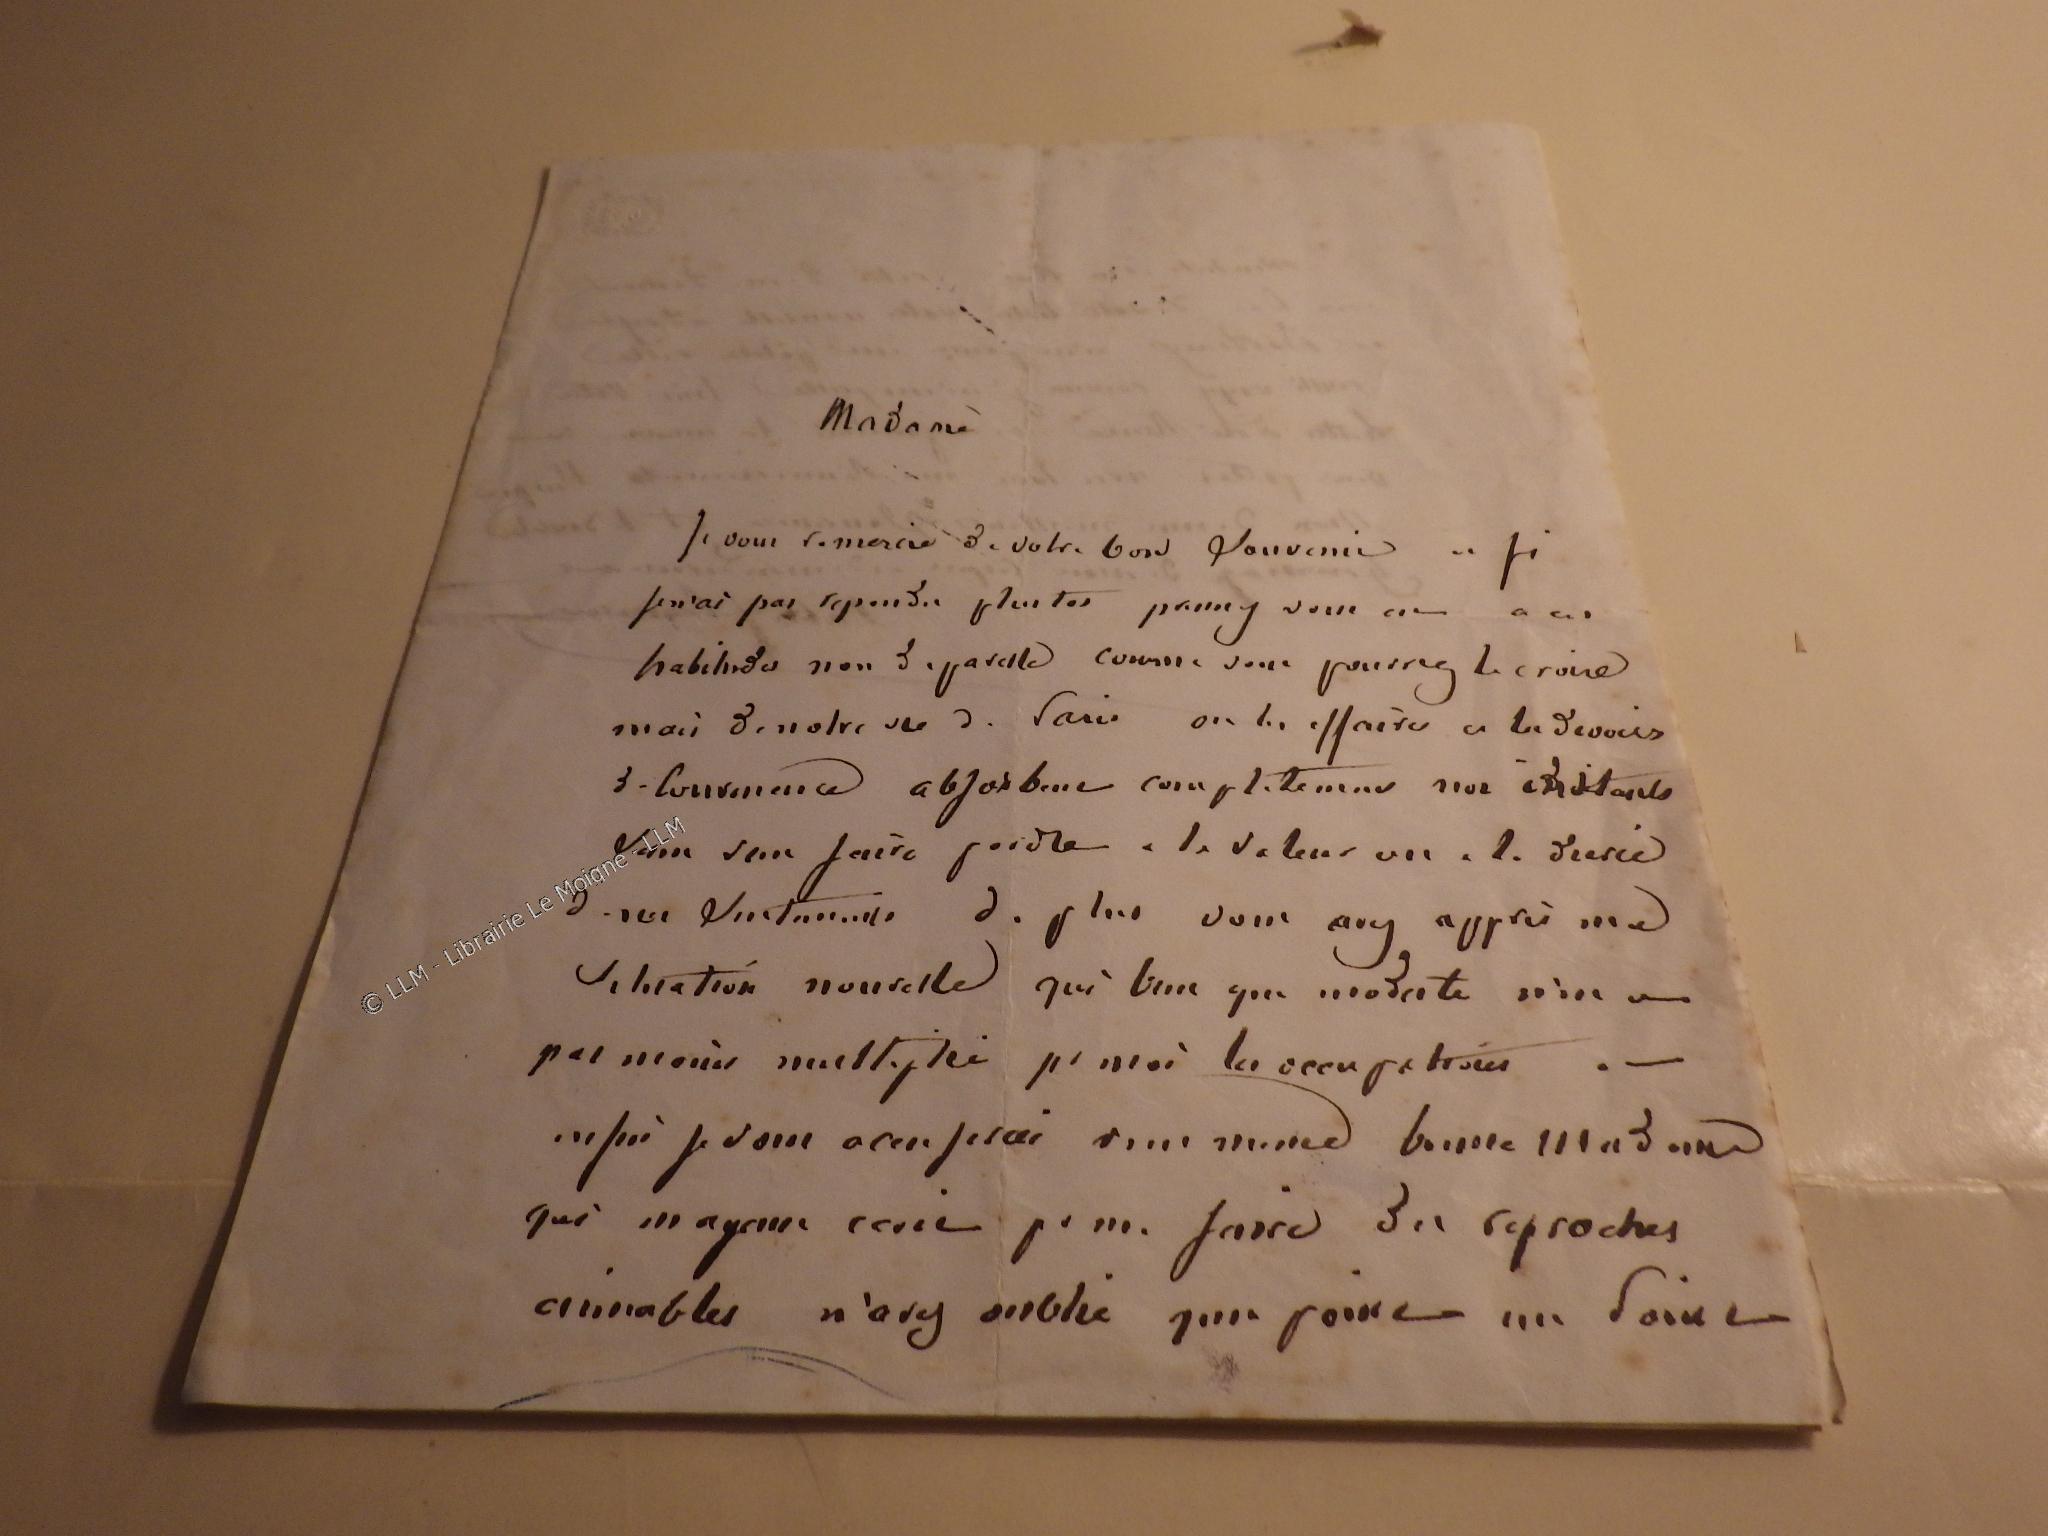 Madame
Je vous remercie de votre bon souvenir et si
je n'ai pas repondu plutos prenez vous en a ces
habitudes non de paresse comme vous pourriez le croire
mais de notre vie de Paris ou les affaires et les devoirs
de Convenence absorbent completement nos instants
sans rien faire perdre a la valeur ou a la durée
de nos sentiments de plus vous avez appris ma
situation nouvelle qui bien que modeste n'en a
pas moins multiplié pr moi les occupations . —
enfin je vous accuserai vous meme bonne Madame
qui m'ayant ecrit pr me faire des reproches
aimables n'avez oublié qu'un point un Point
© LLM - Librairie Le Moigne - LLM